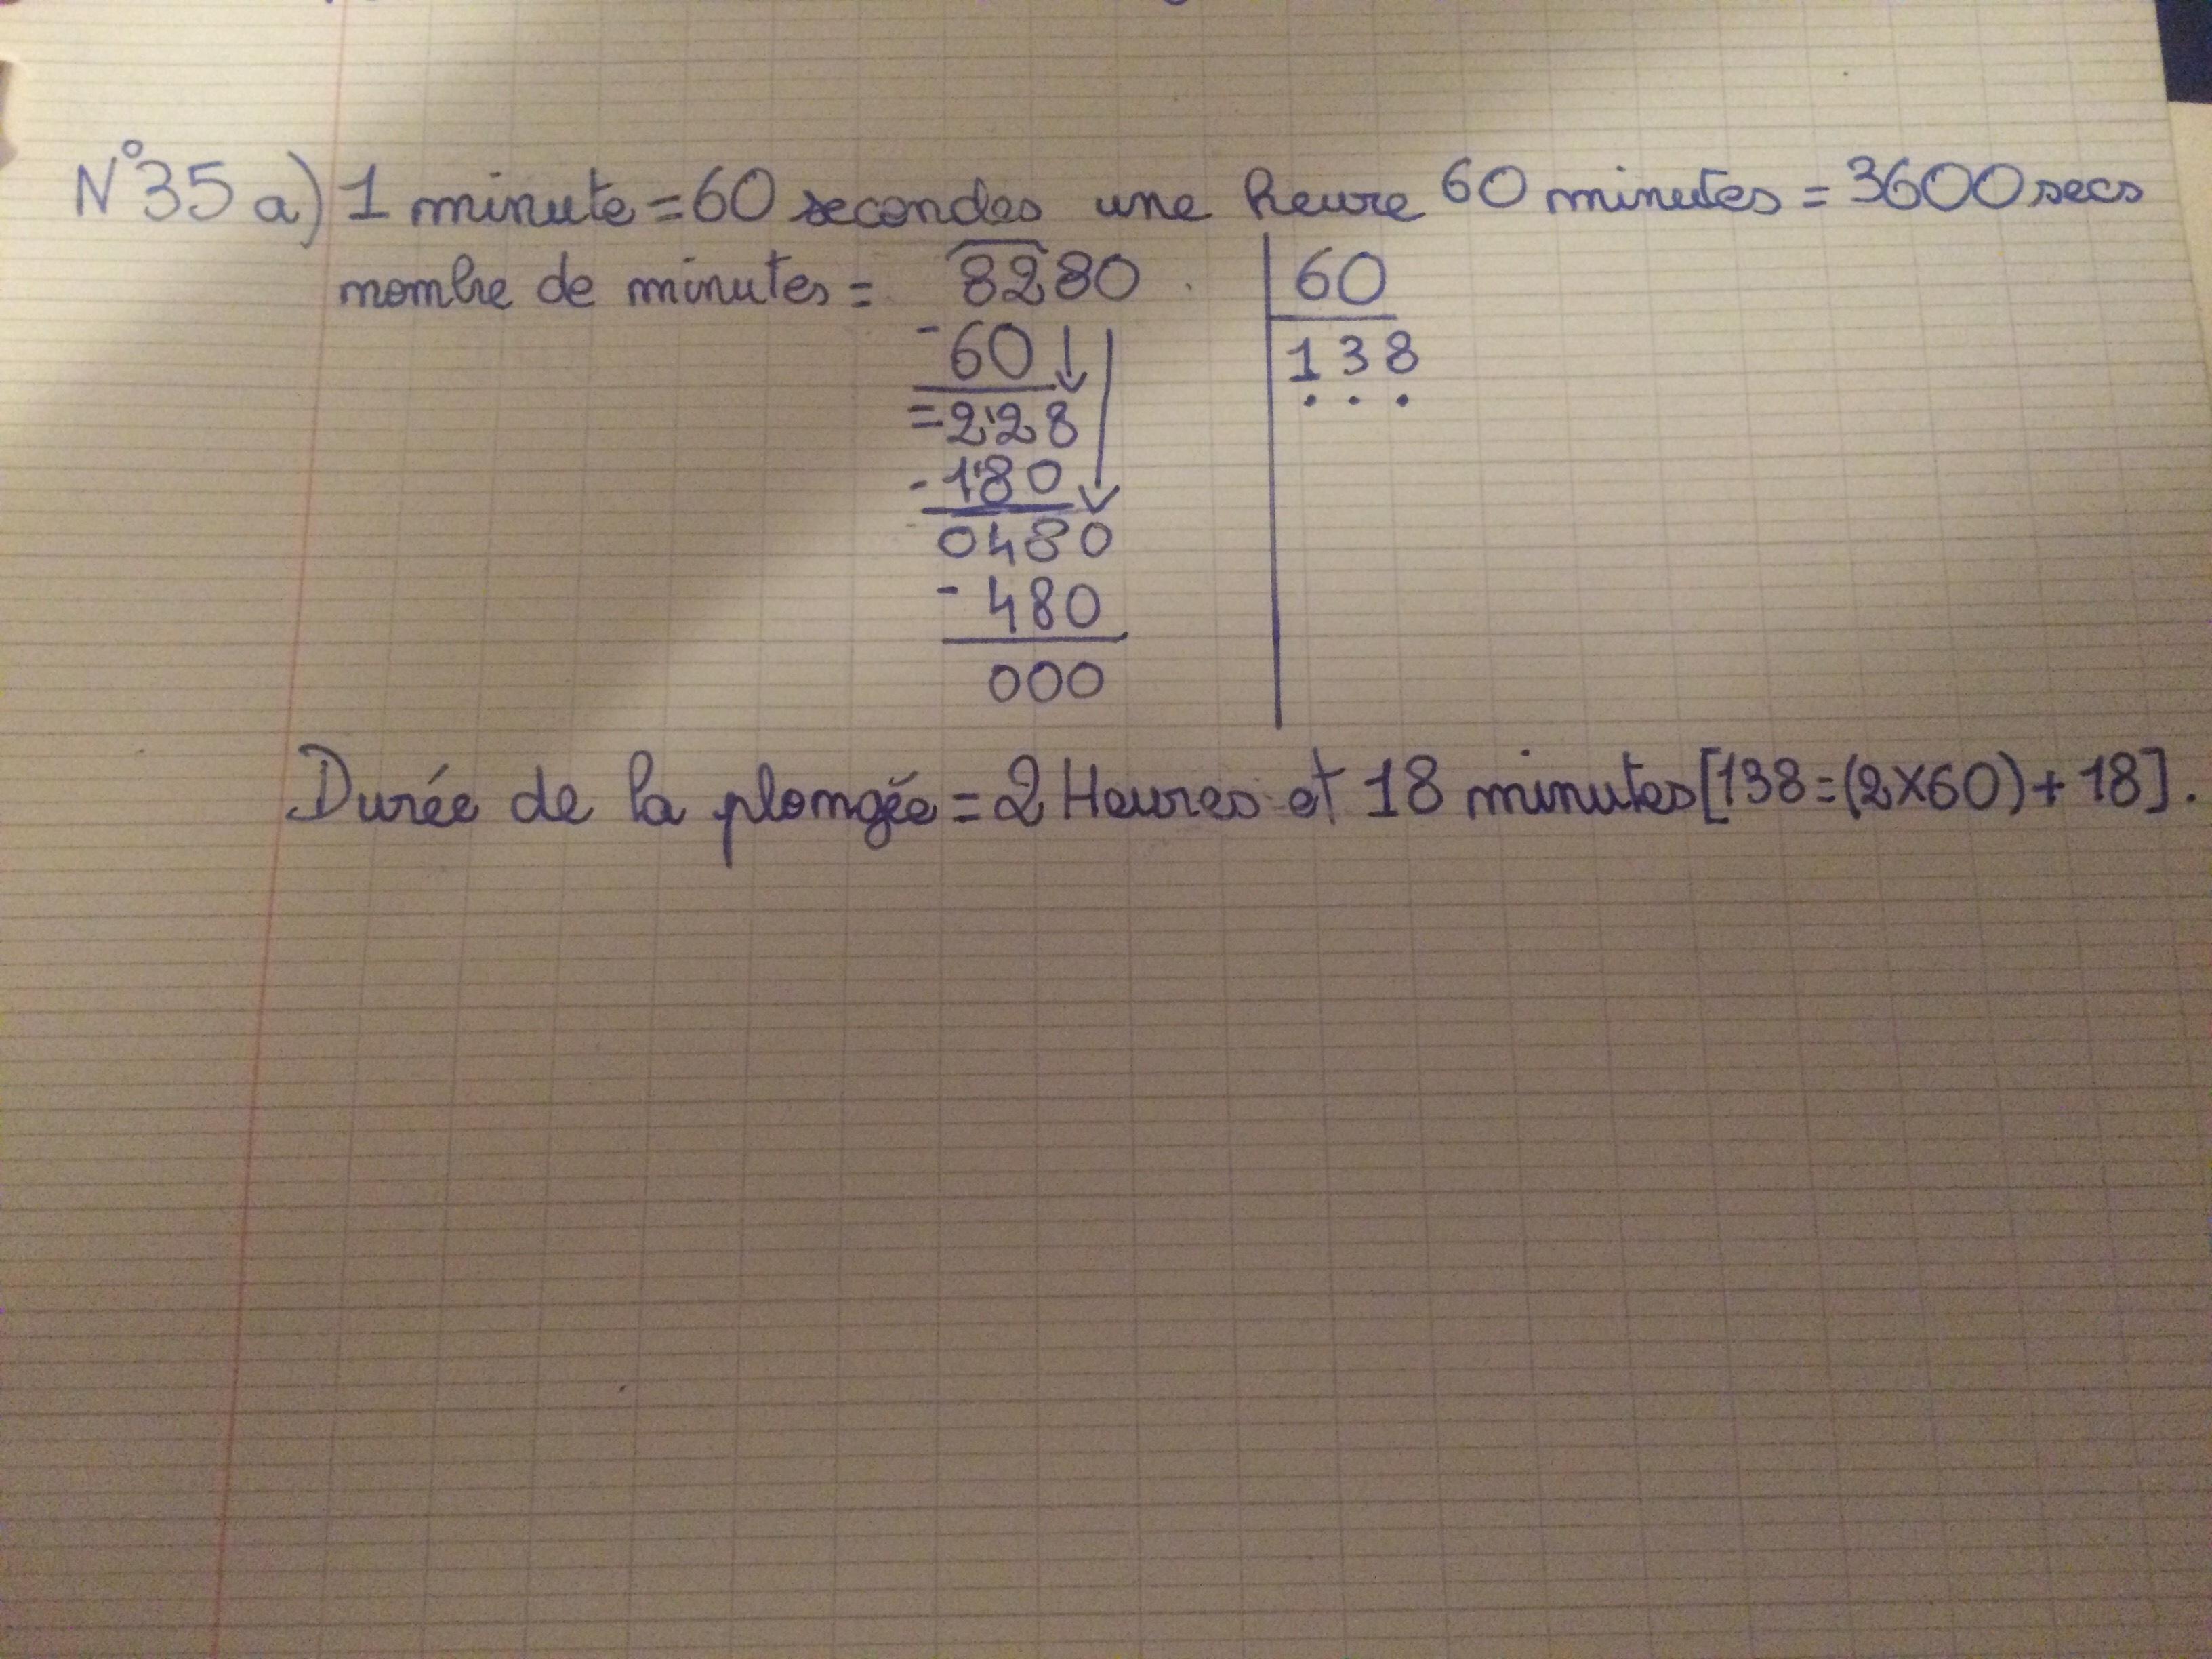 N°35 a) 1 minute = 60 secondes une heure 60 minutes = 3600 secs
nombre de minutes = 8280 60
- 60 138
= 228
- 180
0480
- 480
000
Durée de la plongée = 2 Heures et 18 minutes [138 = (2x60) + 18].